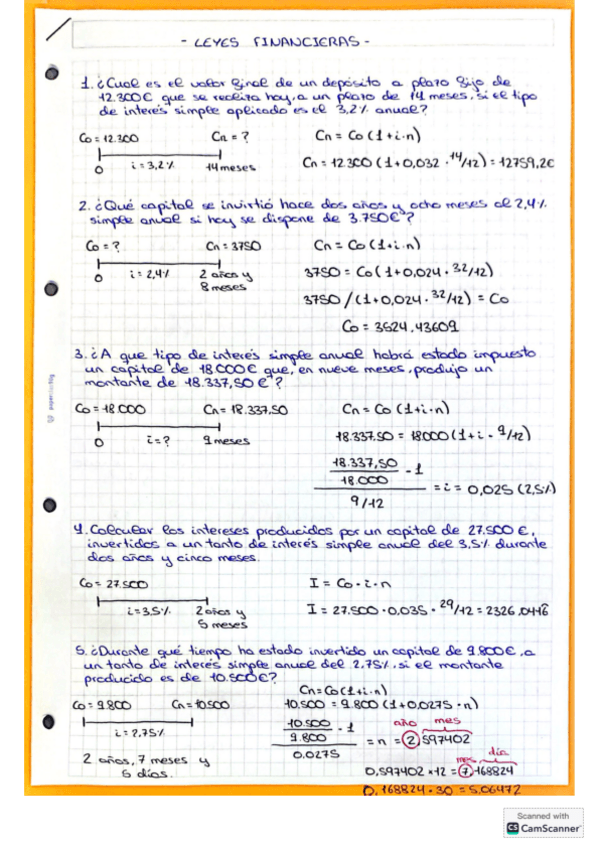 - LEYES FINANCIERAS -
1. ¿Cual es el valor final de un depósito a plazo fijo de
12.300€ que se realiza hoy, a un plazo de 14 meses, si el tipo
de interés simple aplicado es el 3,2% anual?
Co = 12.300 Cn = ? Cn = Co (1+i·n)
0 i = 3,2% 14 meses Cn = 12.300 (1+0,032 · 14/12) = 12759,2€
2. ¿Qué capital se invirtió hace dos años y ocho meses al 2,4%
simple anual si hoy se dispone de 3.750€?
Co = ? Cn = 3750 Cn = Co (1+i·n)
0 i = 2,4% 2 años y 8 meses 3750 = Co (1+0,024 · 32/12)
3750 / (1+0,024 · 32/12) = Co
Co = 3524,43609
3. ¿A que tipo de interés simple anual habrá estado impuesto
un capital de 18000€ que, en nueve meses, produjo un
montante de 18.337,50€?
Co = 18000 Cn = 18.337,50 Cn = Co (1+i·n)
0 i = ? 9 meses 18.337,50 = 18000 (1+i · 9/12)
18.337,50
18.000 - 1
9/12 = i = 0,025 (2,5%)
4. Calcular los intereses producidos por un capital de 27.500€,
invertidos a un tanto de interés simple anual del 3,5% durante
dos años y cinco meses.
Co = 27.500 I = Co · i · n
i = 3,5% 2 años y 5 meses I = 27.500 · 0,035 · 29/12 = 2326,0416
5. ¿Durante qué tiempo ha estado invertido un capital de 9.800€, a
un tanto de interés simple anual del 2,75%, si el montante
producido es de 10.500€?
Cn = Co (1+i·n)
Co = 9.800 Cn = 10500 10.500 = 9.800 (1+0,0275 · n)
i = 2,75%
10.500
9.800 - 1
0,0275 = n = 2,597402
año mes
2 años, 7 meses y
5 días.
mes día
0,597402 × 12 = 7,168824
0,168824 · 30 = 5,06472
Scanned with
CS CamScanner